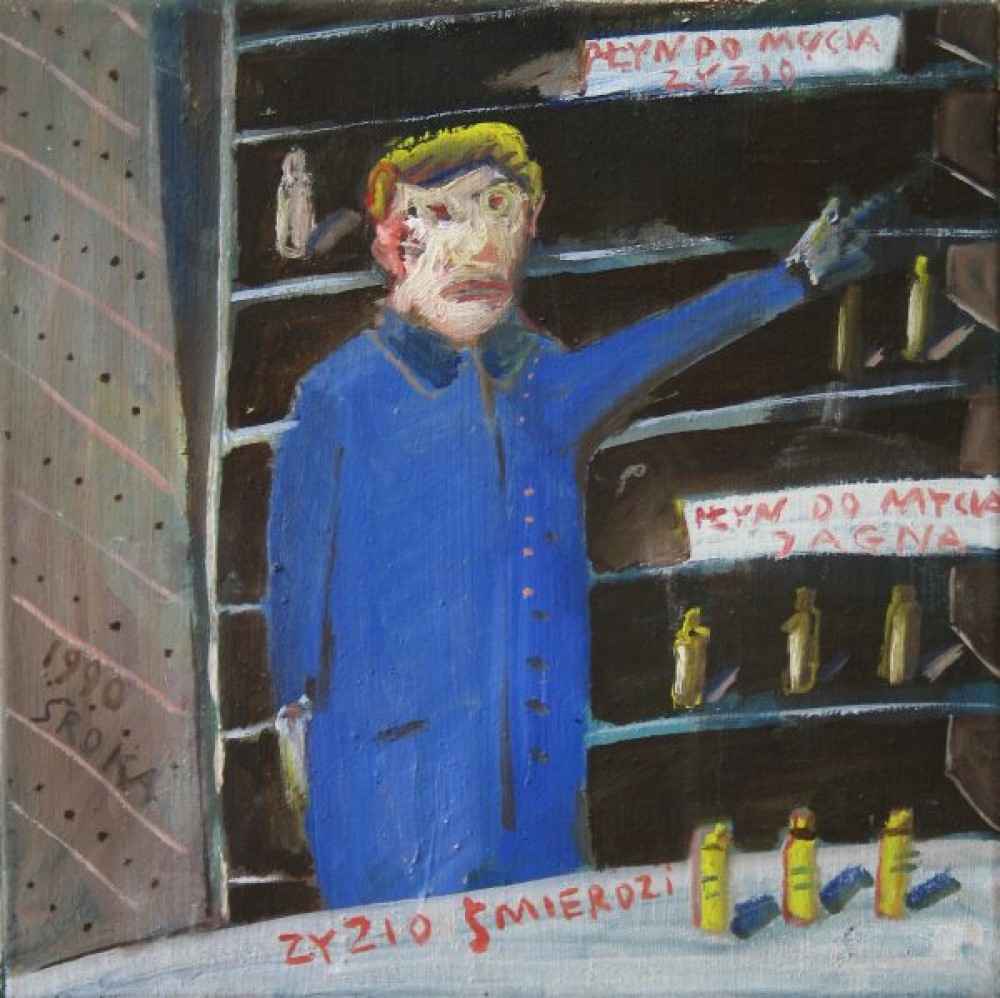 PŁYN DO MYCIA
ZYZIO
PŁYN DO MYCIA
JAGNA
1990
SROKA
ZYZIO ŚMIERDZI